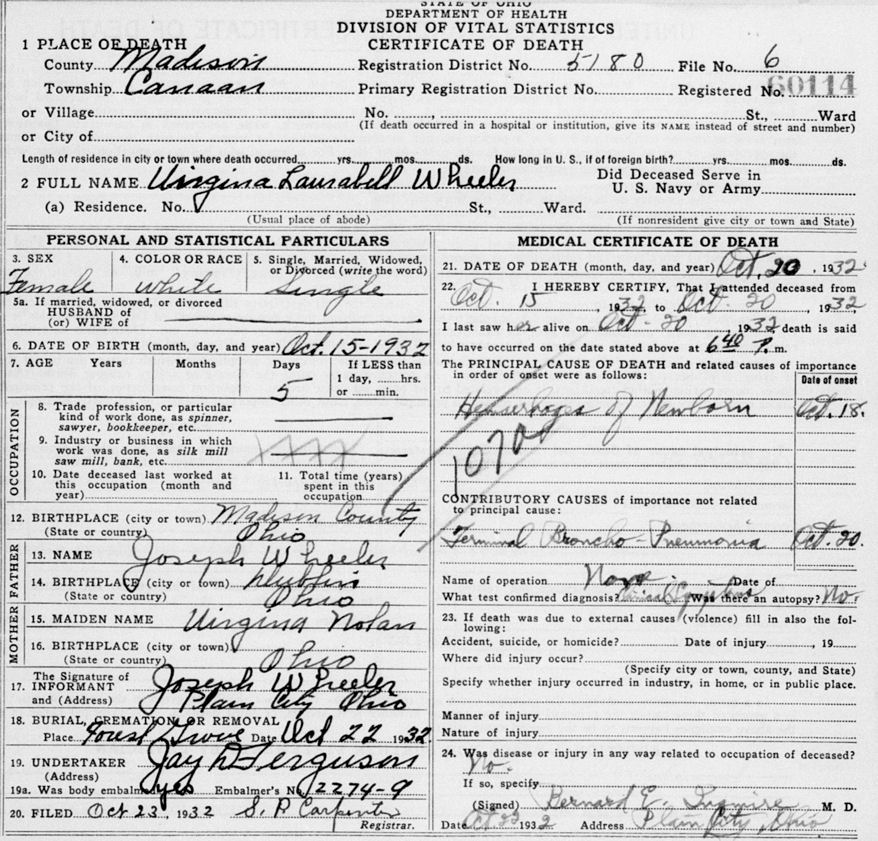 STATE OF OHIO
DEPARTMENT OF HEALTH
DIVISION OF VITAL STATISTICS
CERTIFICATE OF DEATH
1 PLACE OF DEATH
County Madison Registration District No. 5180 File No. 6
Township Canaan Primary Registration District No. Registered No. 60114
or Village No. , St., Ward
(If death occurred in a hospital or institution, give its NAME instead of street and number)
or City of
Length of residence in city or town where death occurred yrs. mos. ds. How long in U. S., if of foreign birth? yrs. mos. ds.
2 FULL NAME Virgina Laurabell Wheeler Did Deceased Serve in U. S. Navy or Army
(a) Residence. No. St., Ward.
(Usual place of abode) (If nonresident give city or town and State)
PERSONAL AND STATISTICAL PARTICULARS
3. SEX 4. COLOR OR RACE 5. Single, Married, Widowed, or Divorced (write the word)
Female White Single
5a. If married, widowed, or divorced
HUSBAND of
(or) WIFE of
6. DATE OF BIRTH (month, day, and year) Oct. 15-1932
7. AGE Years Months Days If LESS than
5 1 day, hrs.
or min.
OCCUPATION
8. Trade, profession, or particular
kind of work done, as spinner,
sawyer, bookkeeper, etc.
9. Industry or business in which
work was done, as silk mill
saw mill, bank, etc.
10. Date deceased last worked at this occupation (month and year)
11. Total time (years) spent in this occupation
12. BIRTHPLACE (city or town) Madison County
(State or country) Ohio
FATHER
13. NAME Joseph Wheeler
14. BIRTHPLACE (city or town) Dublin
(State or country) Ohio
MOTHER
15. MAIDEN NAME Virgina Nolan
16. BIRTHPLACE (city or town)
(State or country) Ohio
17. The Signature of
INFORMANT Joseph Wheeler
and (Address) Plain City Ohio
18. BURIAL, CREMATION, OR REMOVAL
Place Forest Grove Date Oct 22 1932
19. UNDERTAKER Jay D Ferguson
(Address)
19a. Was body embalmed yes Embalmer's No. 2274-9
20. FILED Oct 23, 1932 S. P. Carpenter
Registrar.
MEDICAL CERTIFICATE OF DEATH
21. DATE OF DEATH (month, day, and year) Oct. 20, 1932
22. I HEREBY CERTIFY, That I attended deceased from
Oct. 15, 1932 to Oct-20, 1932
I last saw her alive on Oct-20, 1932 death is said
to have occurred on the date stated above at 6 40 P. m.
The PRINCIPAL CAUSE OF DEATH and related causes of importance
in order of onset were as follows:
Date of onset
Hemorrhages of Newborn Oct. 18.
CONTRIBUTORY CAUSES of importance not related
to principal cause:
Terminal Broncho-Pneumonia Oct. 20.
Name of operation None Date of
What test confirmed diagnosis? Clinical Was there an autopsy? No.
23. If death was due to external causes (violence) fill in also the fol-
lowing:
Accident, suicide, or homicide? Date of injury , 19
Where did injury occur?
(Specify city or town, county, and State)
Specify whether injury occurred in industry, in home, or in public place.
Manner of injury
Nature of injury
24. Was disease or injury in any way related to occupation of deceased?
No.
If so, specify
(Signed) Bernard E. Ingmire M. D.
Date Oct. 22 1932 Address Plain City, Ohio